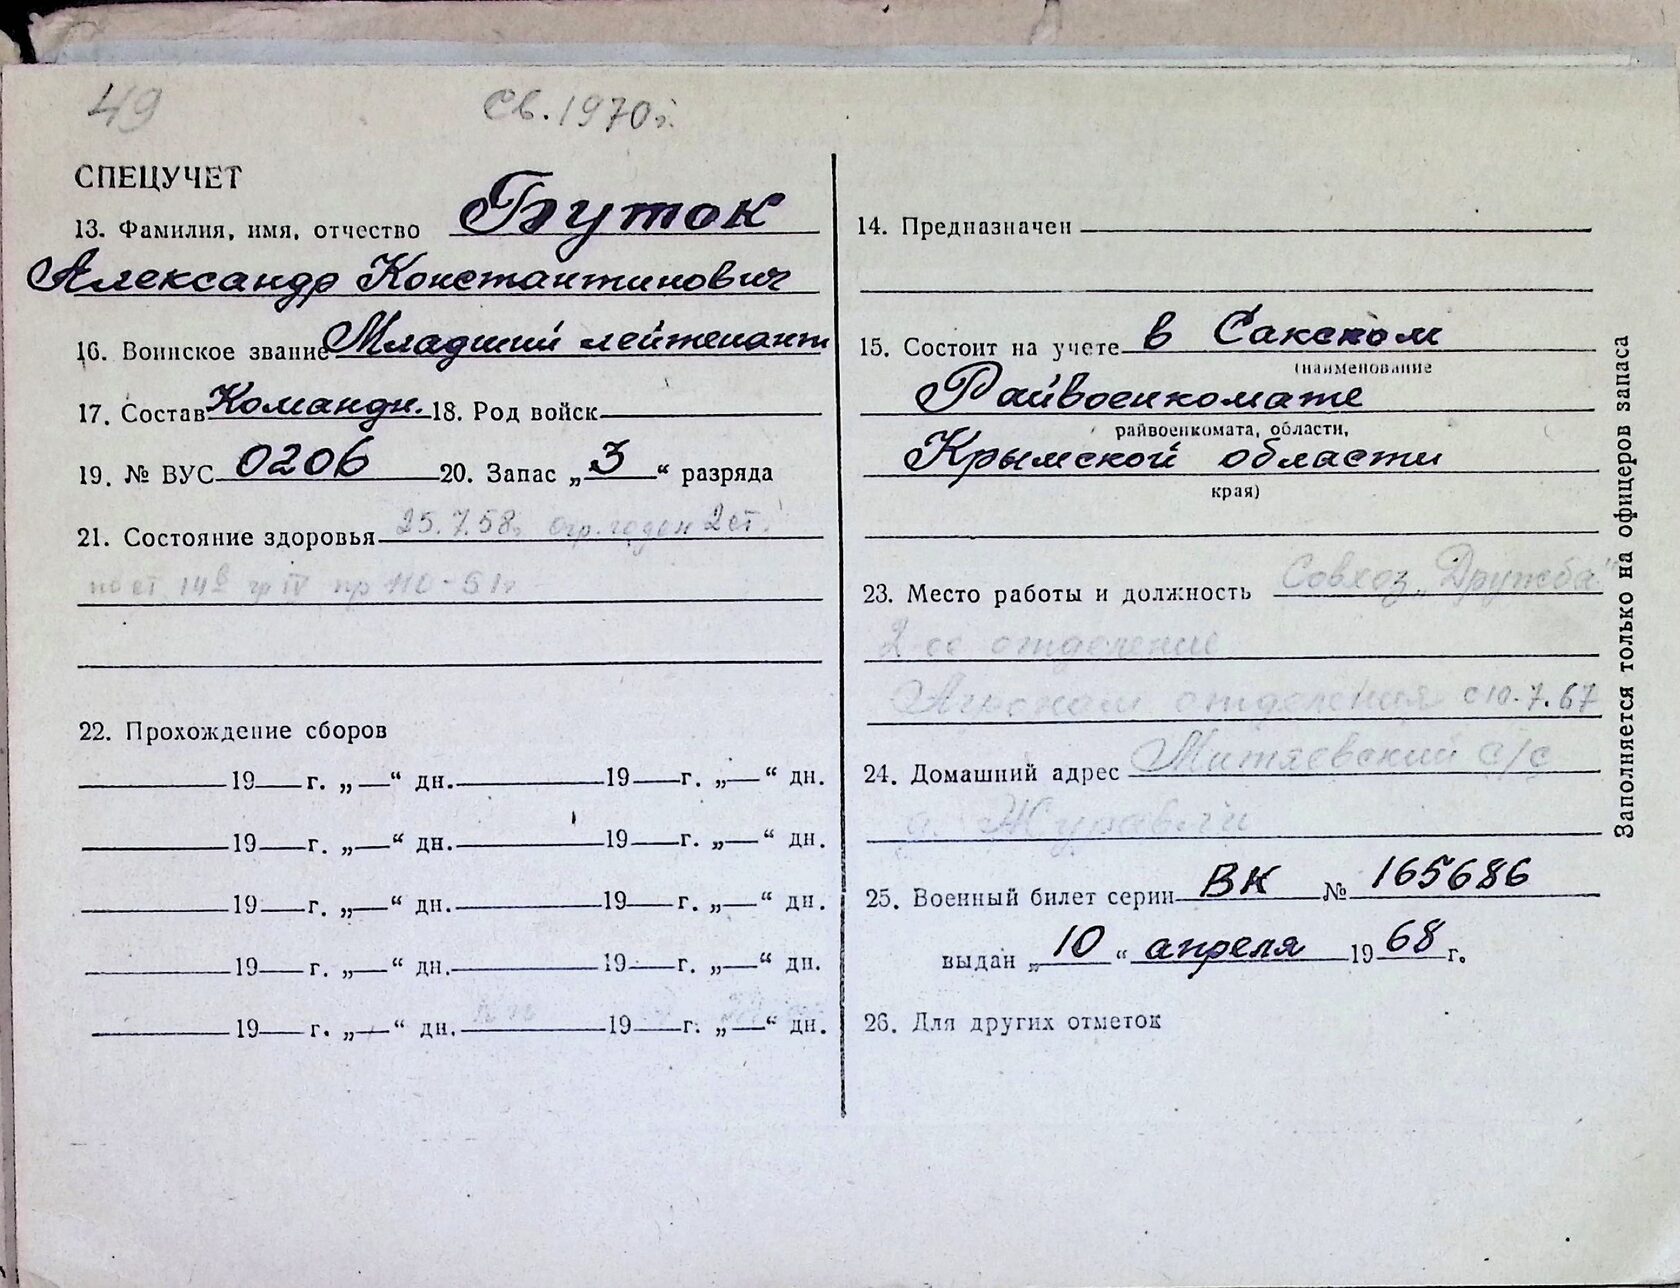 49
св. 1970 г.
СПЕЦУЧЕТ
13. Фамилия, имя, отчество Буток
Александр Константинович
16. Воинское звание Младший лейтенант
17. Состав Командн. 18. Род войск
19. № ВУС 0206 20. Запас „3“ разряда
21. Состояние здоровья 25.7.58г. огр. годен 2 ст.
по ст 14в гр IV пр 110-51г
22. Прохождение сборов
19 г. „—“ дн. 19 г. „—“ дн.
19 г. „—“ дн. 19 г. „—“ дн.
19 г. „—“ дн. 19 г. „—“ дн.
19 г. „—“ дн. 19 г. „—“ дн.
19 г. „—“ дн. 19 г. „—“ дн.
14. Предназначен
15. Состоит на учете в Сакском
(наименование
Райвоенкомате
райвоенкомата, области,
Крымской области
края)
23. Место работы и должность Совхоз „Дружба“
2-ое отделение
Агроном отделения с 10.7.67
24. Домашний адрес Митяевский с/с
д. Журавли
25. Военный билет серии ВК № 165686
выдан „10“ апреля 1968 г.
26. Для других отметок
Заполняется только на офицеров запаса